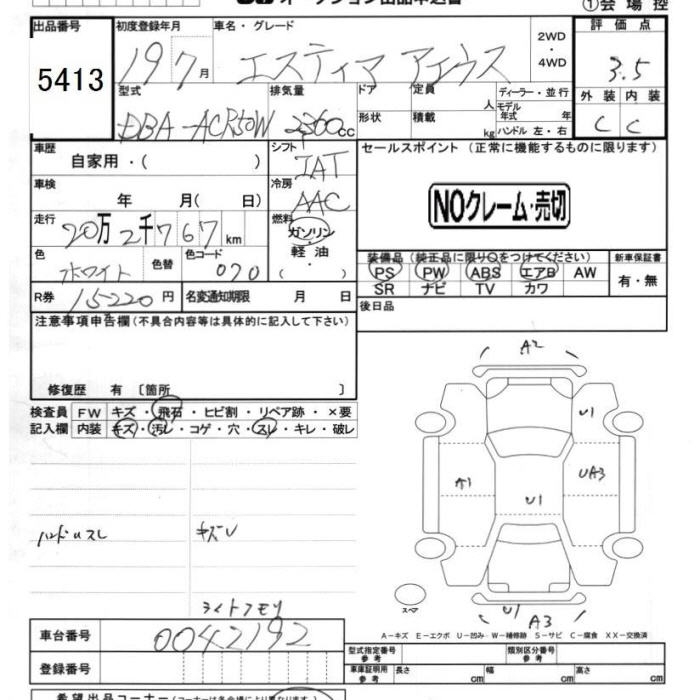 ①会場控
出品番号 初度登録年月 車名・グレード 評価点
5413 19 7月 エスティマ アエラス 2WD・4WD 3.5
型式 排気量 ドア 定員 人 ディーラー・並行 外装 内装
DBA-ACR50W cc 形状 積載 kg モデル年式 年 C C
ハンドル 左・右
車歴 自家用・( ) シフト IAT セールスポイント (正常に機能するものに限ります)
車検 年 月( 日) 冷房 AAC NOクレーム・売切
走行 20万2千767km 燃料 ガソリン・軽油・( )
色 ホワイト 色替 色コード 070
装備品 (純正品に限り○をつけてください) 新車保証書
PS PW ABS エアB AW 有・無
SR ナビ TV カワ
R券 15220円 名変通知期限 月 日
後日品
注意事項申告欄 (不具合内容等は具体的に記入して下さい)
修復歴 有 〔箇所 〕
検査員 FW キズ・飛石・ヒビ割・リペア跡・×要
記入欄 内装 キズ・汚レ・コゲ・穴・スレ・キレ・破レ
A2
U1
A1 UA3
U1
ハンドルスレ キズU
スペア
ライトクモリ
U1 A3
A−キズ E−エクボ U−凹み W−補修跡 S−サビ C−腐食 XX−交換済
車台番号 0042192
型式指定番号 参考 類別区分番号 参考
登録番号 車庫証明用 参考 長さ cm 幅 cm 高さ cm
希望出品コーナー